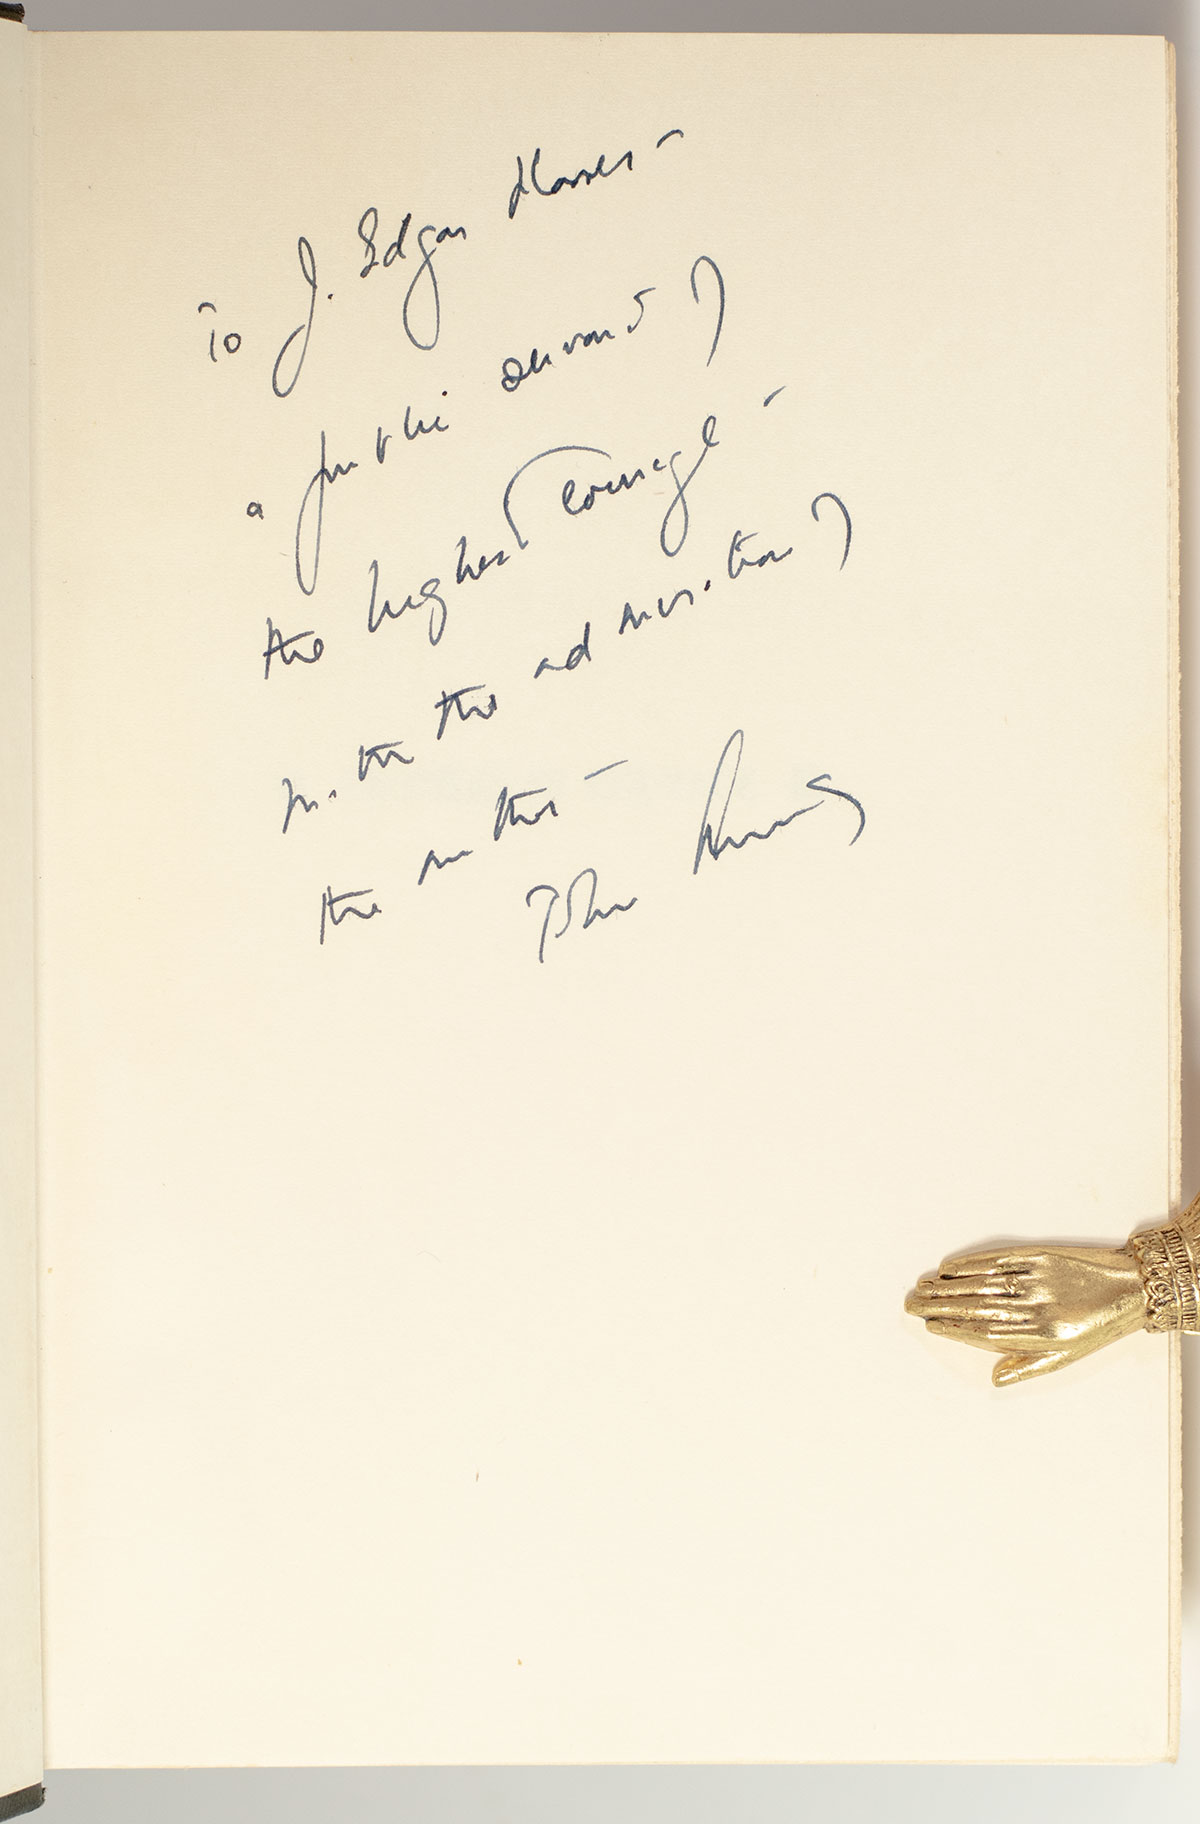 To J. Edgar Hoover –
a public servant of
the highest courage –
with the admiration of
the author –
John Kennedy